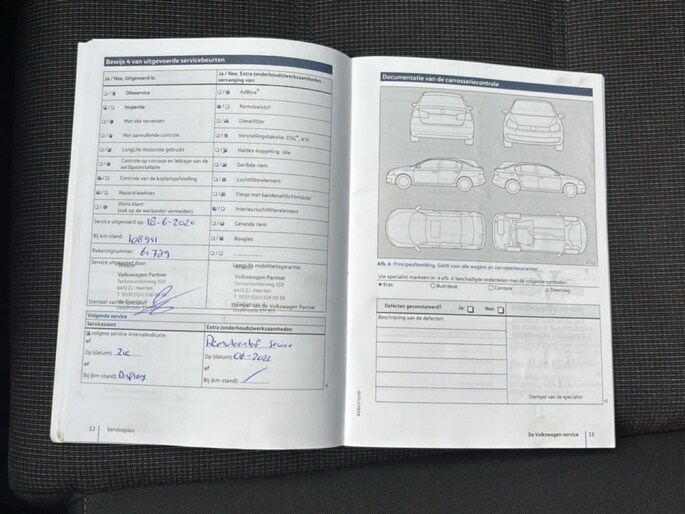 Bewijs 4 van uitgevoerde servicebeurten
Ja / Nee. Uitgevoerd is:
Olieservice
Inspectie
Met olie verversen
Met aanvullende controle
LongLife motorolie gebruikt
Controle op corrosie en lekkage van de aardgasinstallatie
Controle van de koplampafstelling
Reparatieadvies
Wens klant
(ook op de werkorder vermelden)
Service uitgevoerd op: 18-6-2020
Bij km-stand: 108951
Rekeningnummer: 61779
Service uitgevoerd door:
Volkswagen Partner
Stempel van de specialist
Ja / Nee. Extra (onderhouds)werkzaamheden - vervanging van:
AdBlue®
Remvloeistof
Dieselfilter
Versnellingsbakolie: DSG®, ATF
Haldex-koppeling: olie
Geribde riem
Luchtfilterelement
Flesje met bandenafdichtmiddel
Interieurluchtfilterelement
Getande riem
Bougies
LongLife mobiliteitsgarantie:
Volkswagen Partner
Stempel van de Volkswagen Partner
Volgende service
Servicesoort
volgens service-intervalindicatie
of
Op (datum): zie
of
Bij (km-stand): Display
Extra (onderhouds)werkzaamheden
Op (datum): 06-2022
of
Bij (km-stand):
12 Serviceplan
Documentatie van de carrosseriecontrole
Afb. 6 Principeafbeelding. Geldt voor alle wagens en carrosserievarianten.
Uw specialist markeert in de beschadigde onderdelen met de volgende symbolen:
Kras Buil/deuk Corrosie Steenslag
Defecten geconstateerd? Ja: Nee:
Beschrijving van de defecten:
Stempel van de specialist
De Volkswagen-service 13